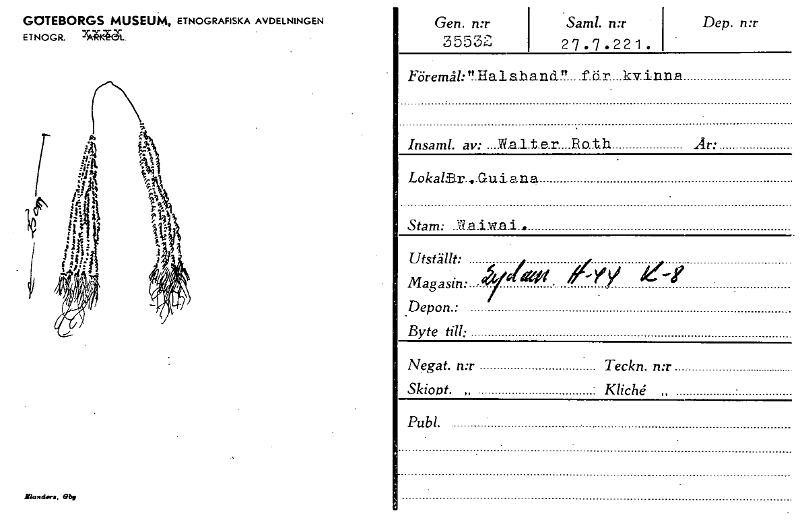 GÖTEBORGS MUSEUM, ETNOGRAFISKA AVDELNINGEN
ETNOGR. ARKEOL.
35 cm
Elanders, Gbg
Gen. n:r Saml. n:r Dep. n:r
35532 27.7.221.
Föremål: "Halsband" för kvinna
Insaml. av: Walter Roth År:
Lokal: Br. Guiana
Stam: Waiwai.
Utställt:
Magasin: Sydam H-44 K-8
Depon.:
Byte till:
Negat. n:r Teckn. n:r
Skiopt. „ Kliché „
Publ.